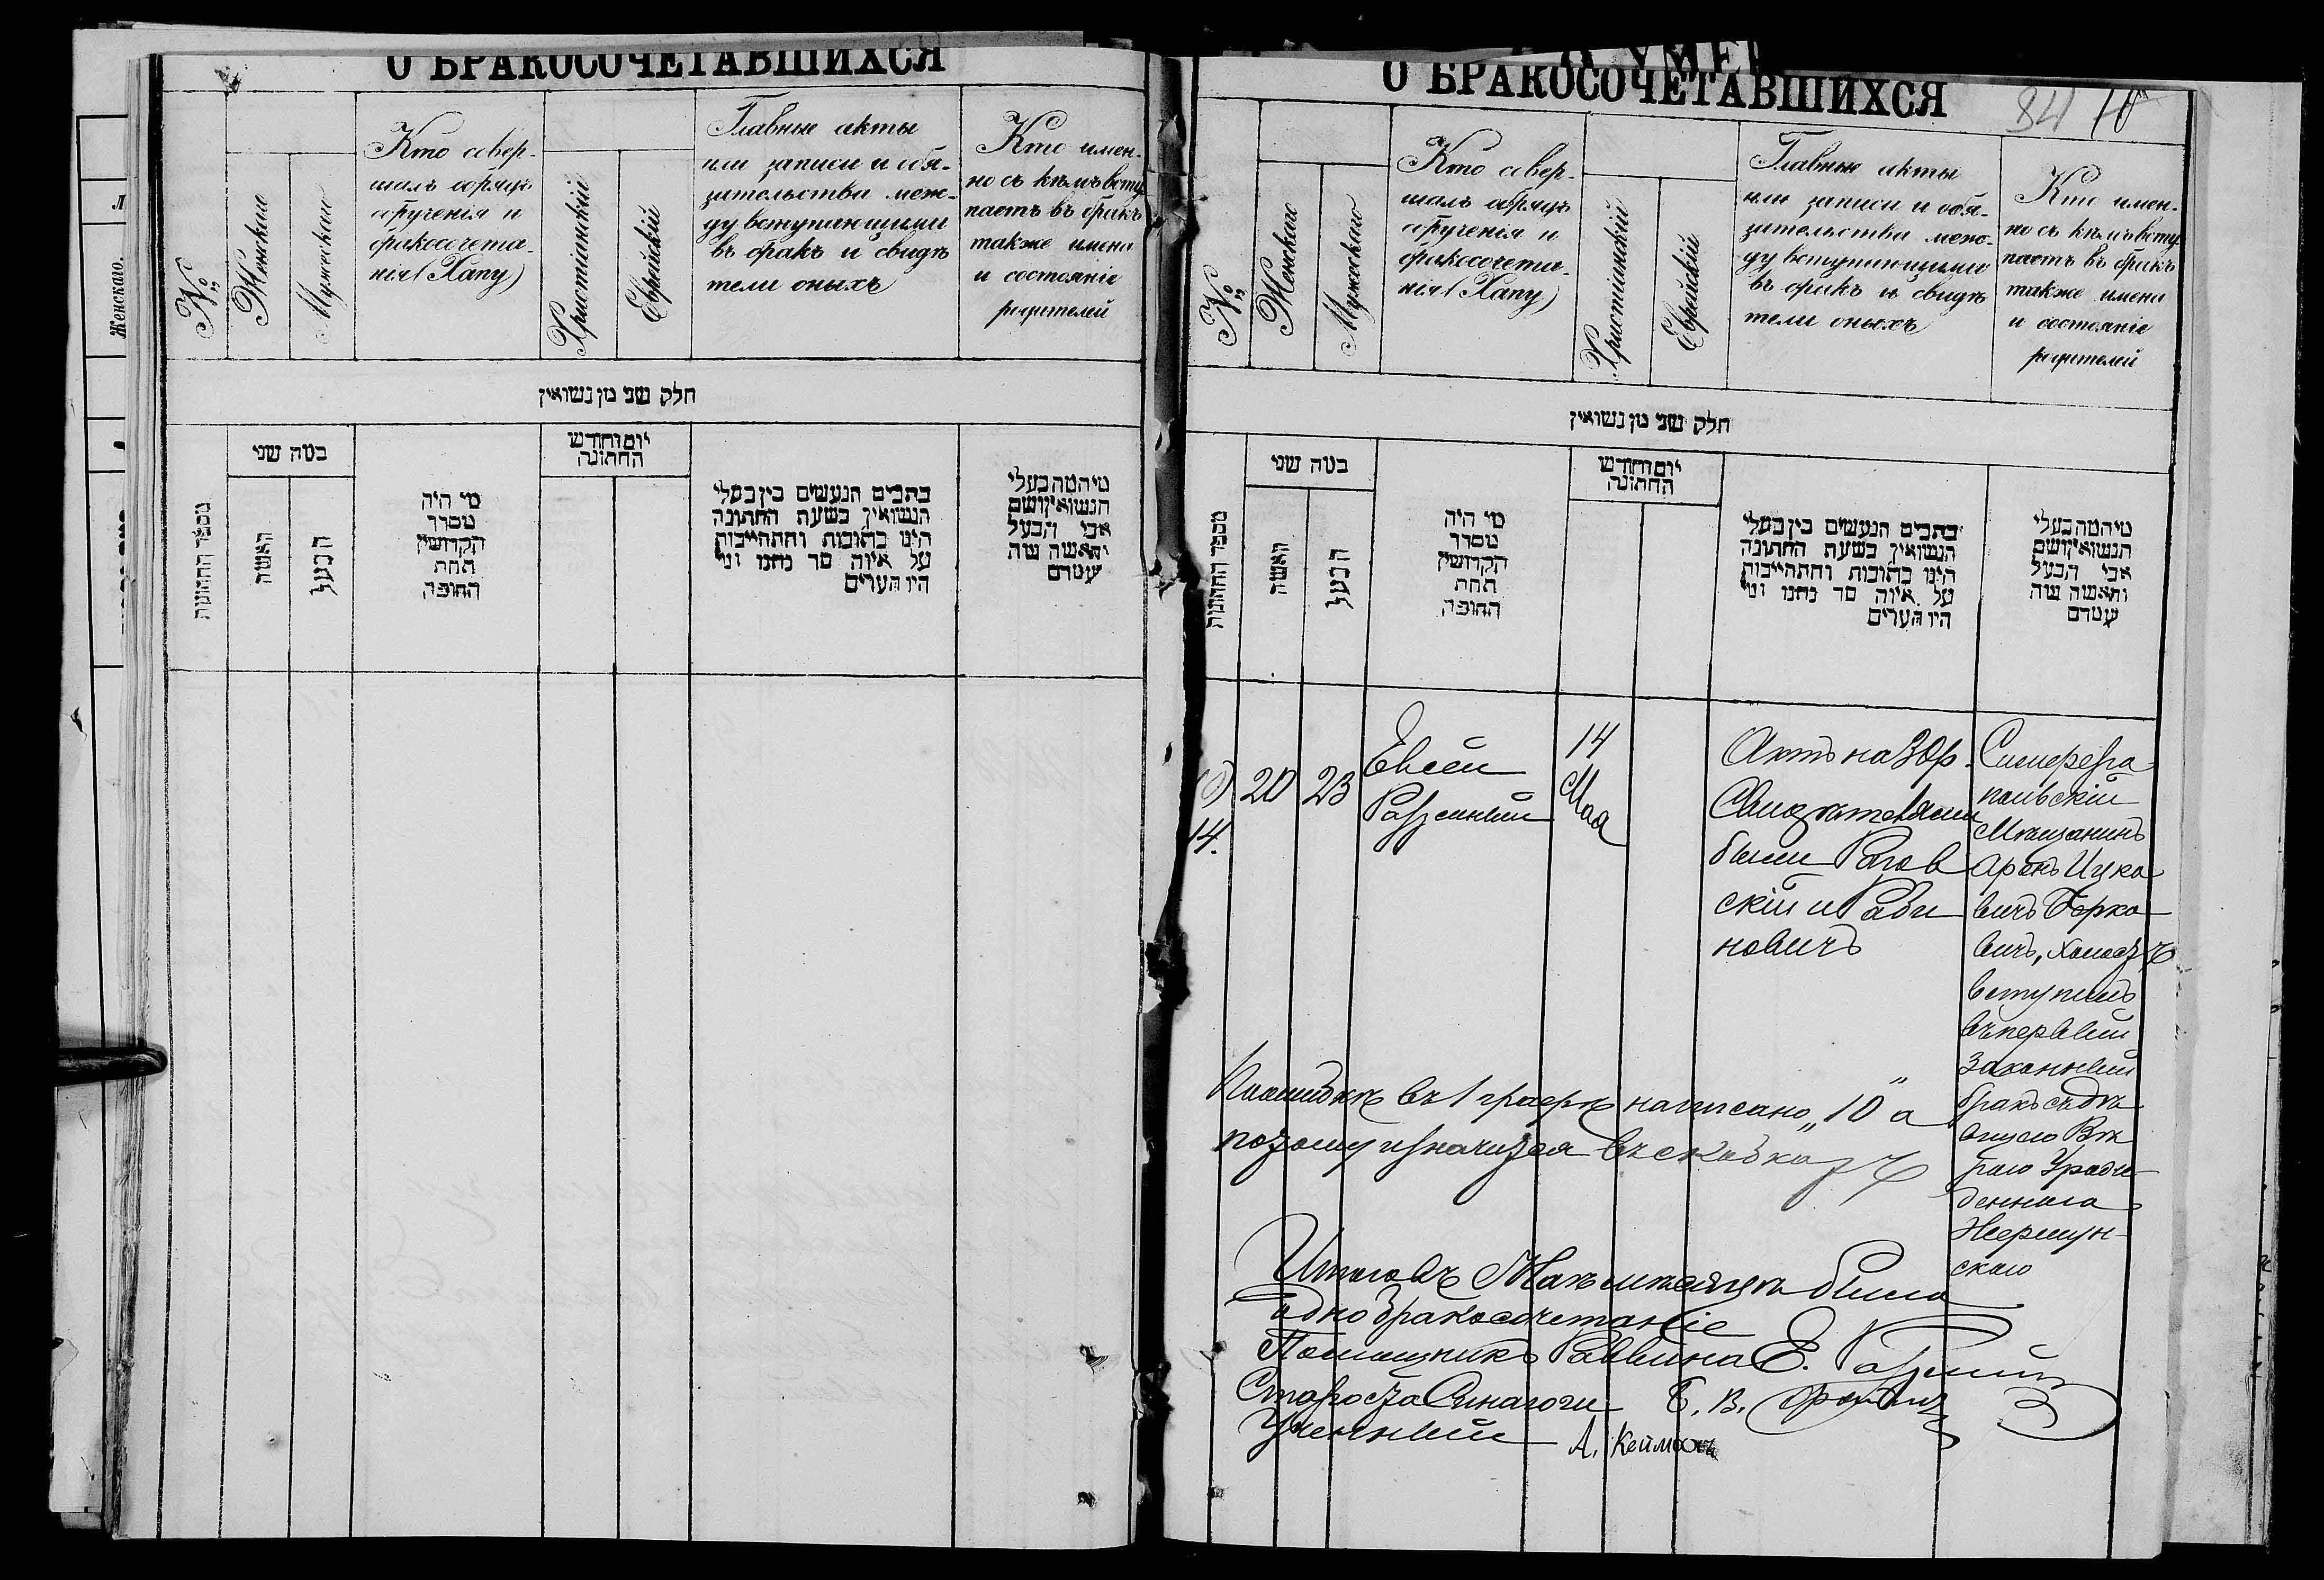 О БРАКОСОЧЕТАВШИХСЯ
№
Женскаго
Мужескаго
Кто совер-
шалъ обрядъ
обрученія и
бракосочета-
нія (Хапу)
Христіанскій
Еврейскій
Главные акты
или записи и обя-
зательства меж-
ду вступающими
въ бракъ и свидѣ
тели оныхъ
Кто имен-
но съ кѣмъ всту
паетъ въ бракъ
также имена
и состояніе
родителей
חלק שני מן נשואין
מספר החתונות
במה שני
האשה
הבעל
מי היה
מסדר
הקדושין
תחת
החופה
יום וחודש
החתונה
כתבים הנעשים בין בעלי
הנשואין בשעת החתונה
היינו כתובות והתחייבות
על איזה סך נתנו ומי
היו העדים
מי המה בעלי
הנשואין ושם
אבי הבעל
והאשה ומה
עמדם
Женскаго.
О БРАКОСОЧЕТАВШИХСЯ
84 10
№
Женскаго
Мужескаго
Кто совер-
шалъ обрядъ
обрученія и
бракосочета-
нія (Хапу)
Христіанскій
Еврейскій
Главные акты
или записи и обя-
зательства меж-
ду вступающими
въ бракъ и свидѣ
тели оныхъ
Кто имен-
но съ кѣмъ всту
паетъ въ бракъ
также имена
и состояніе
родителей
חלק שני מן נשואין
מספר החתונות
במה שני
האשה
הבעל
מי היה
מסדר
הקדושין
תחת
החופה
יום וחודש
החתונה
כתבים הנעשים בין בעלי
הנשואין בשעת החתונה
היינו כתובות והתחייבות
על איזה סך נתנו ומי
היו העדים
מי המה בעלי
הנשואין ושם
אבי הבעל
והאשה ומה
עמדם
14.
20
23
Евсей
14
Мая
Актъ на 30 р.
Свидѣтелями
были Рогов
скій и Раби
новичъ
Симферо
польскій
Мѣщанинъ
Аронъ Ицко
вичъ Берко
вичъ, холостъ
вступилъ
въ первый
законный
бракъ съ дѣ
вицею
Урожде
денною
Жермун-
скою
По ошибкѣ въ 1 графѣ написано „10" а
потому и значится въ скобкахъ
Итого въ Маѣ мѣсяцѣ было
одно бракосочетаніе
Помощникъ Раввина Е.
Староста Синагоги Б. В.
Ученный А.